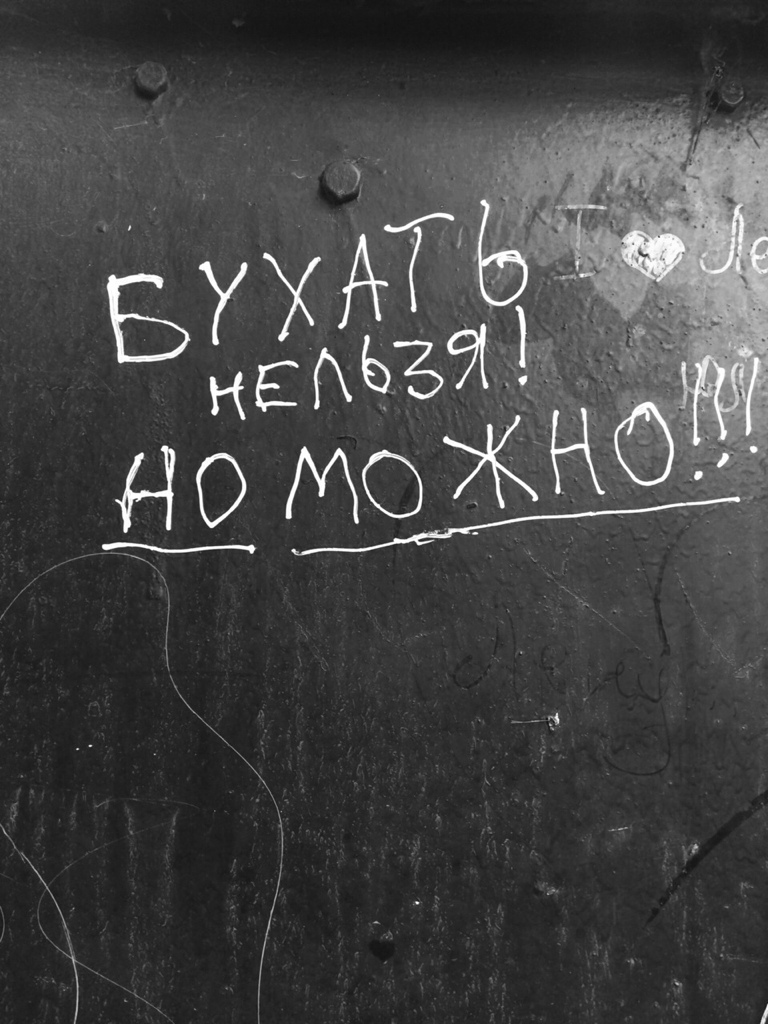 БУХАТЬ
НЕЛЬЗЯ!
НО МОЖНО!!!
I ♥